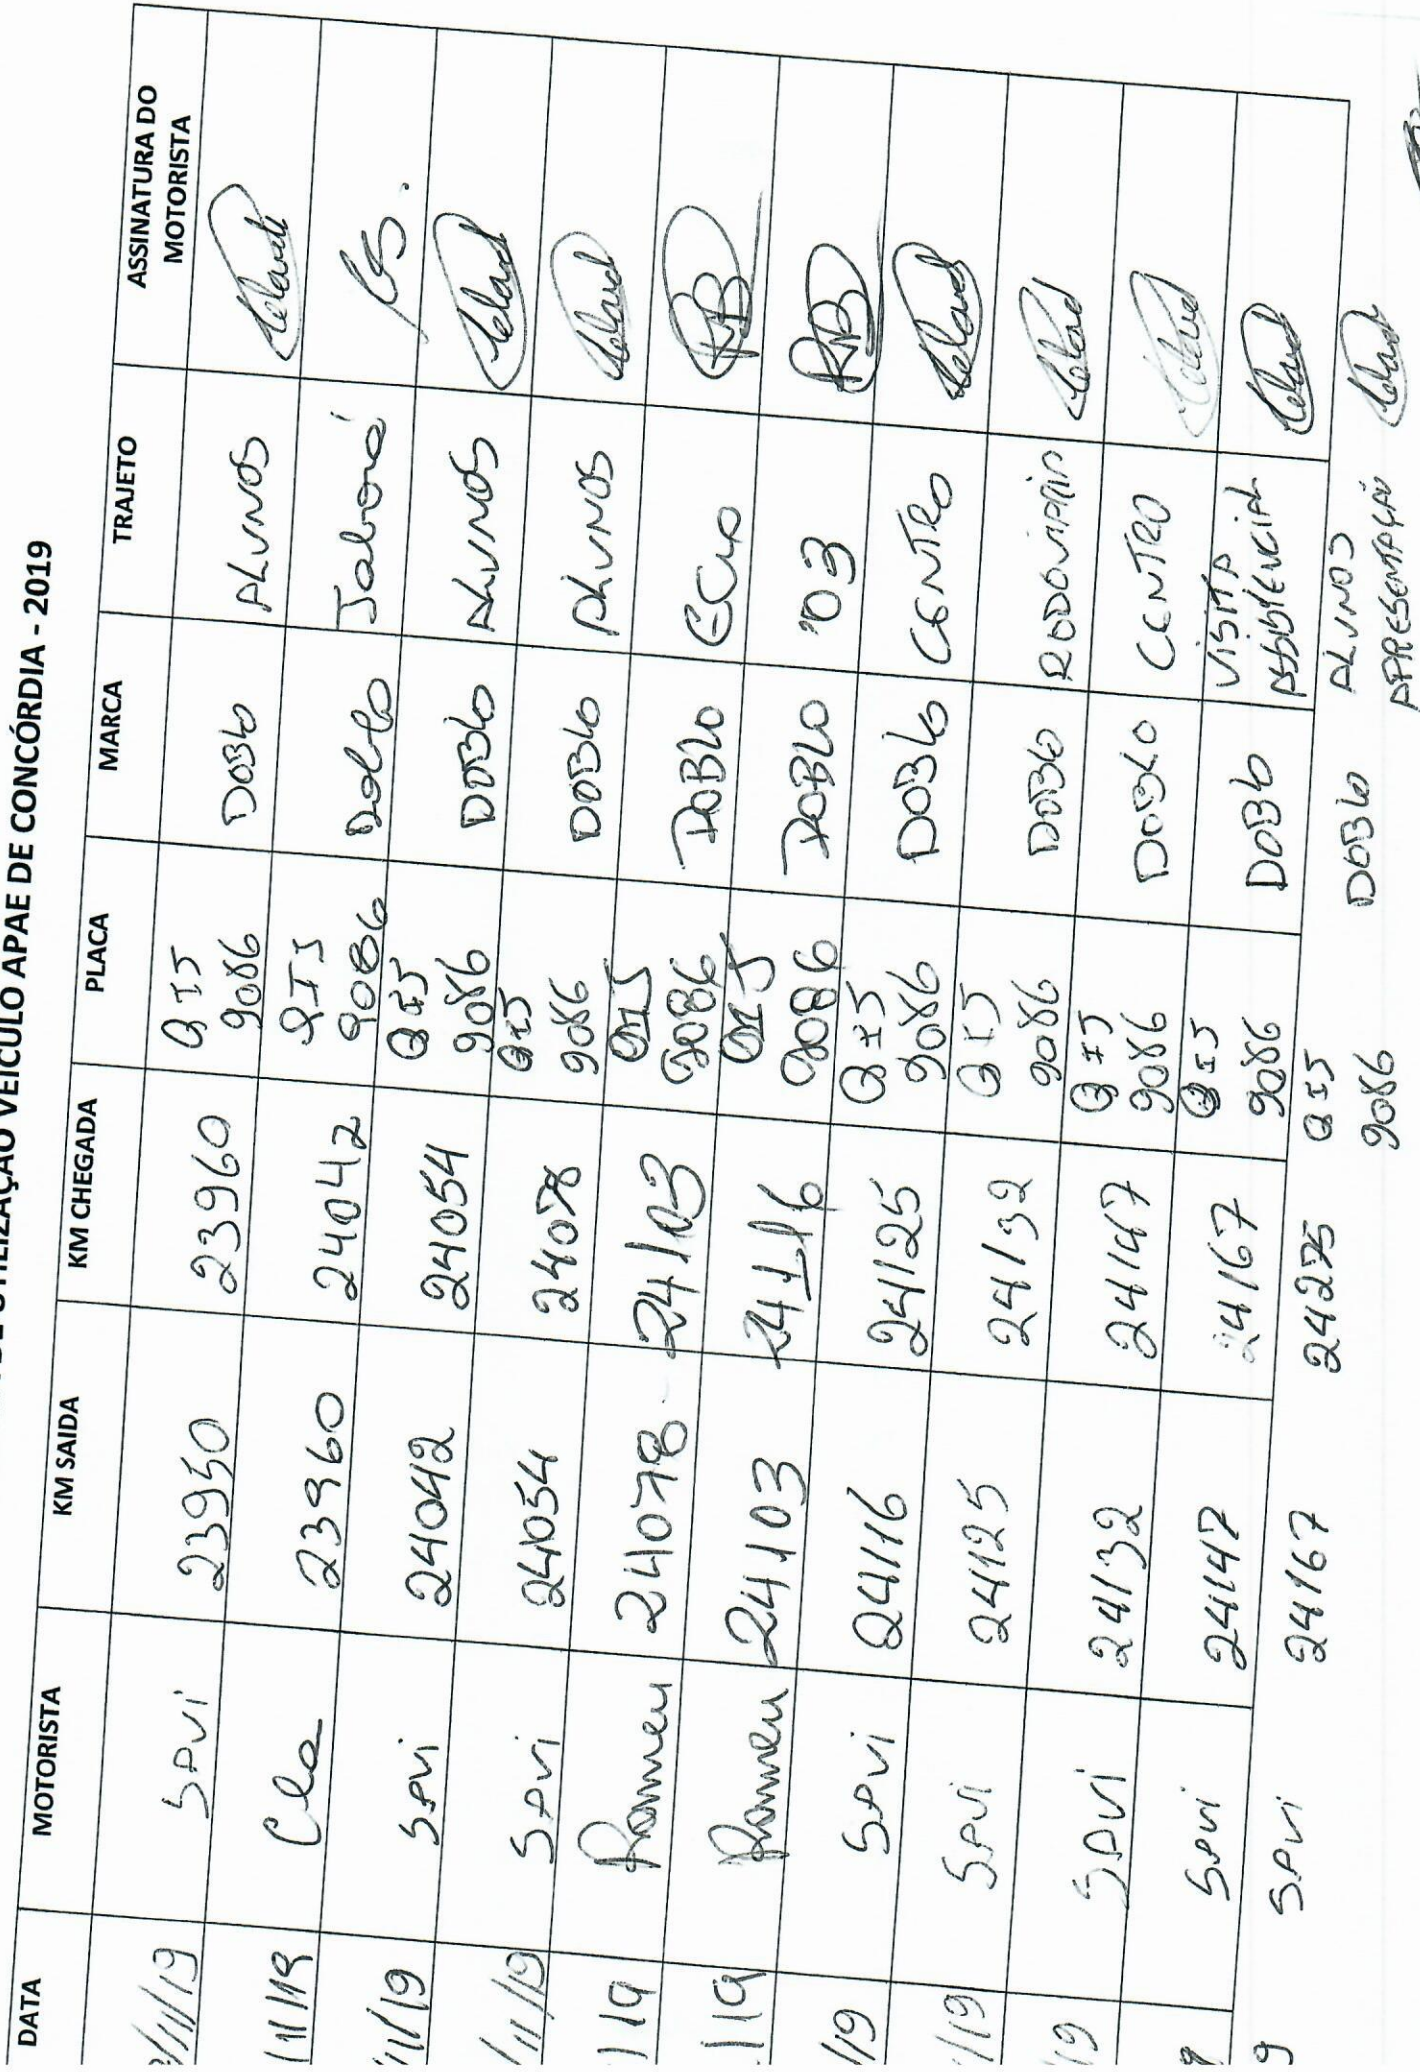 UTILIZAÇÃO VEÍCULO APAE DE CONCÓRDIA - 2019
DATA MOTORISTA KM SAIDA KM CHEGADA PLACA MARCA TRAJETO ASSINATURA DO MOTORISTA
/11/19 SAVI 23950 23960 QIJ 9086 DOBLO ALUNOS
/11/19 Cla 23960 24042 QIJ 9086 Doblo Jaborá
/11/19 SAVI 24042 24054 QIJ 9086 DOBLO ALUNOS
/11/19 SAVI 24054 24078 QIJ 9086 DOBLO ALUNOS
/19 Romeu 24078 24103 QIJ 9086 DOBLO
/19 Romeu 24103 24116 QIJ 9086 DOBLO 03 RB
/19 SAVI 24116 24125 QIJ 9086 DOBLO CENTRO
/19 SAVI 24125 24132 QIJ 9086 DOBLO RODOVIARIA
/19 SAVI 24132 24147 QIJ 9086 DOBLO CENTRO
9 SAVI 24147 24167 QIJ 9086 DOBLO VISITA ASSISTENCIAL
9 SAVI 24167 24275 QIJ 9086 DOBLO ALUNOS APRESENTAÇÃO